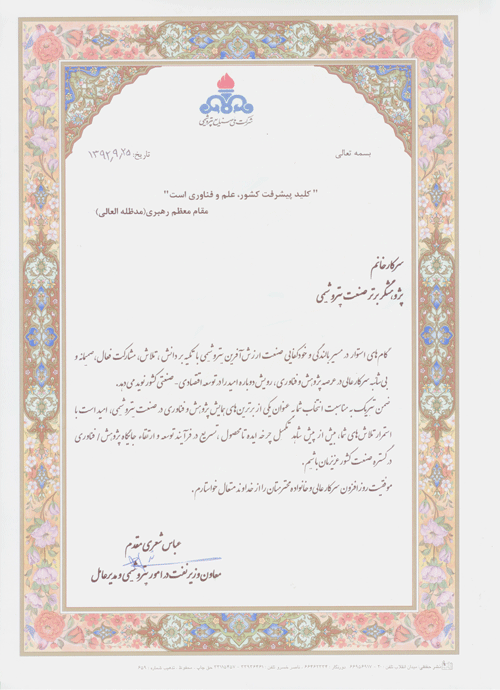 شرکت ملی صنایع پتروشیمی
بسمه تعالی
تاریخ: ۱۳۹۲,۹,۲۵
" کلید پیشرفت کشور، علم و فناوری است"
مقام معظم رهبری(مدظله العالی)
سرکار خانم
پژوهشگر برتر صنعت پتروشیمی
گام های استوار در مسیر بالندگی و خودکفایی صنعت ارزش آفرین پتروشیمی با تکیه بر دانش، تلاش، مشارکت فعال، صمیمانه و
بی شائبه سرکار عالی در عرصه پژوهش و فناوری، رویش دوباره امید را در توسعه اقتصادی - صنعتی کشور نوید می دهد.
ضمن تبریک به مناسبت انتخاب شما به عنوان یکی از برترین های همایش پژوهش و فناوری در صنعت پتروشیمی، امید است با
استمرار تلاش های شما، بیش از پیش شاهد تکمیل چرخه ایده تا محصول، تسریع در فرآیند توسعه و ارتقاء جایگاه پژوهش / فناوری
در گستره صنعت کشور عزیزمان باشیم.
موفقیت روز افزون سرکار عالی و خانواده محترمتان را از خداوند متعال خواستارم.
عباس شعری مقدم
معاون وزیر نفت در امور پتروشیمی و مدیر عامل